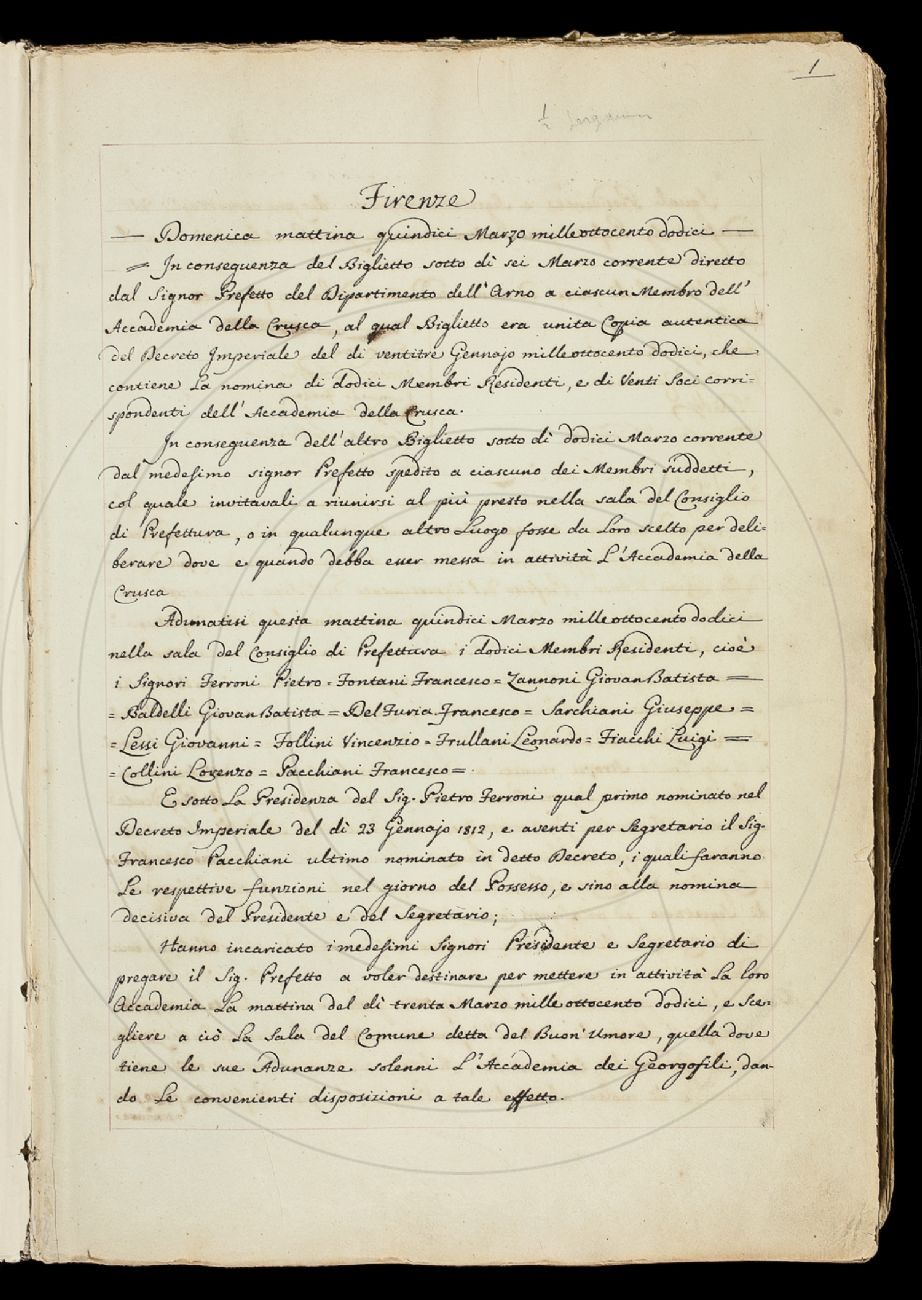 1
Firenze
— Domenica mattina quindici Marzo milleottocento dodici —
= In conseguenza del Biglietto sotto dì sei Marzo corrente diretto
dal Signor Prefetto del Dipartimento dell'Arno a ciascun Membro dell'
Accademia della Crusca, al qual Biglietto era unita Copia autentica
del Decreto Imperiale del dì ventitre Gennajo milleottocento dodici, che
contiene la nomina di dodici Membri Residenti, e di Venti Soci corri=
spondenti dell'Accademia della Crusca.
In conseguenza dell'altro Biglietto sotto dì dodici Marzo corrente
dal medesimo signor Prefetto spedito a ciascuno dei Membri suddetti,
col quale invitavali a riunirsi al più presto nella sala del Consiglio
di Prefettura, o in qualunque altro Luogo fosse da Loro scelto per deli=
berare dove e quando debba esser messa in attività L'Accademia della
Crusca
Adunatisi questa mattina quindici Marzo milleottocento dodici
nella sala del Consiglio di Prefettura i dodici Membri Residenti, cioè
i Signori Ferroni Pietro = Fontani Francesco = Zannoni Giovan Batista =
= Baldelli Giovan Batista = Del Furia Francesco = Sarchiani Giuseppe =
= Lessi Giovanni = Follini Vincenzio = Frullani Leonardo = Fiacchi Luigi =
= Collini Lorenzo = Pacchiani Francesco =
E sotto La Presidenza del Sig. Pietro Ferroni qual primo nominato nel
Decreto Imperiale del dì 23 Gennajo 1812, e aventi per Segretario il Sig.
Francesco Pacchiani ultimo nominato in detto Decreto, i quali faranno
Le respettive funzioni nel giorno del Possesso, e sino alla nomina
decisiva del Presidente e del Segretario;
Hanno incaricato i medesimi Signori Presidente e Segretario di
pregare il Sig. Prefetto a voler destinare per mettere in attività La loro
Accademia La mattina del dì trenta Marzo milleottocento dodici, e Sce=
gliere a ciò La Sala del Comune detta del Buon'Umore, quella dove
tiene le sue Adunanze solenni L'Accademia dei Georgofili, dan=
do Le convenienti disposizioni a tale effetto.